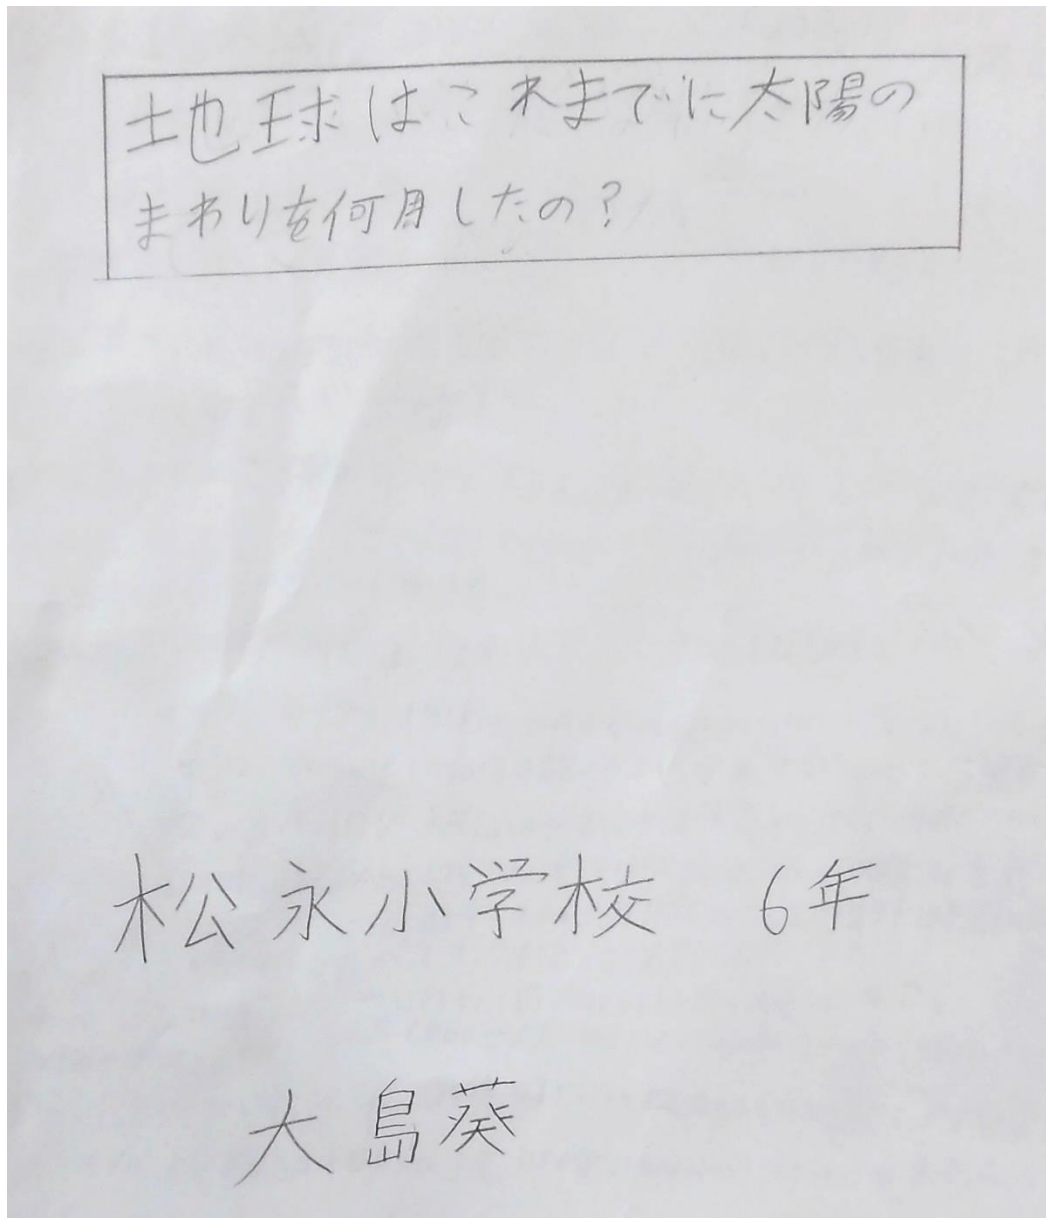 地球はこれまでに太陽の
まわりを何周したの?
松永小学校 6年
大島葵